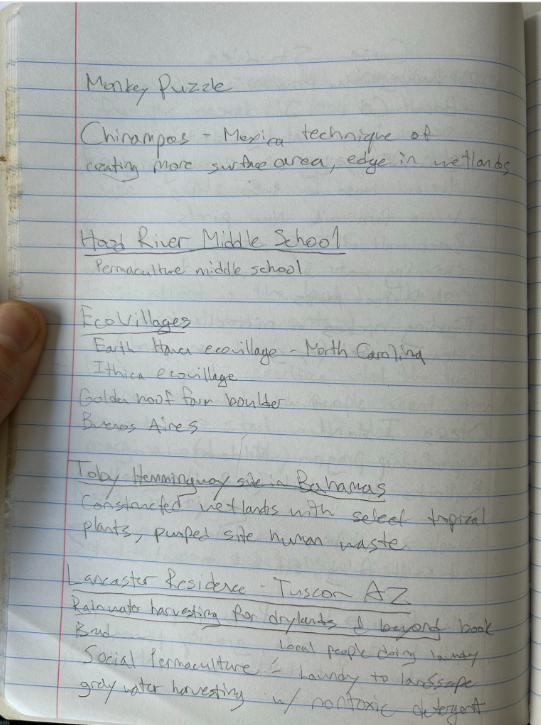 Monkey Puzzle
Chinampas - Mexica technique of
creating more surface area, edge in wetlands
Hood River Middle School
Permaculture middle school
EcoVillages
Earth Haven ecovillage - North Carolina
Ithica ecovillage
Golden hoof farm boulder
Buenos Aires
Toby Hemmingway site in Bahamas
Constructed wetlands with select tropical
plants, pumped site human waste
Lancaster Residence - Tuscon AZ
Rainwater harvesting for drylands & beyond book
Brad
Local people doing laundry
Social Permaculture = Laundry to landscape
grey water harvesting w/ nontoxic detergent